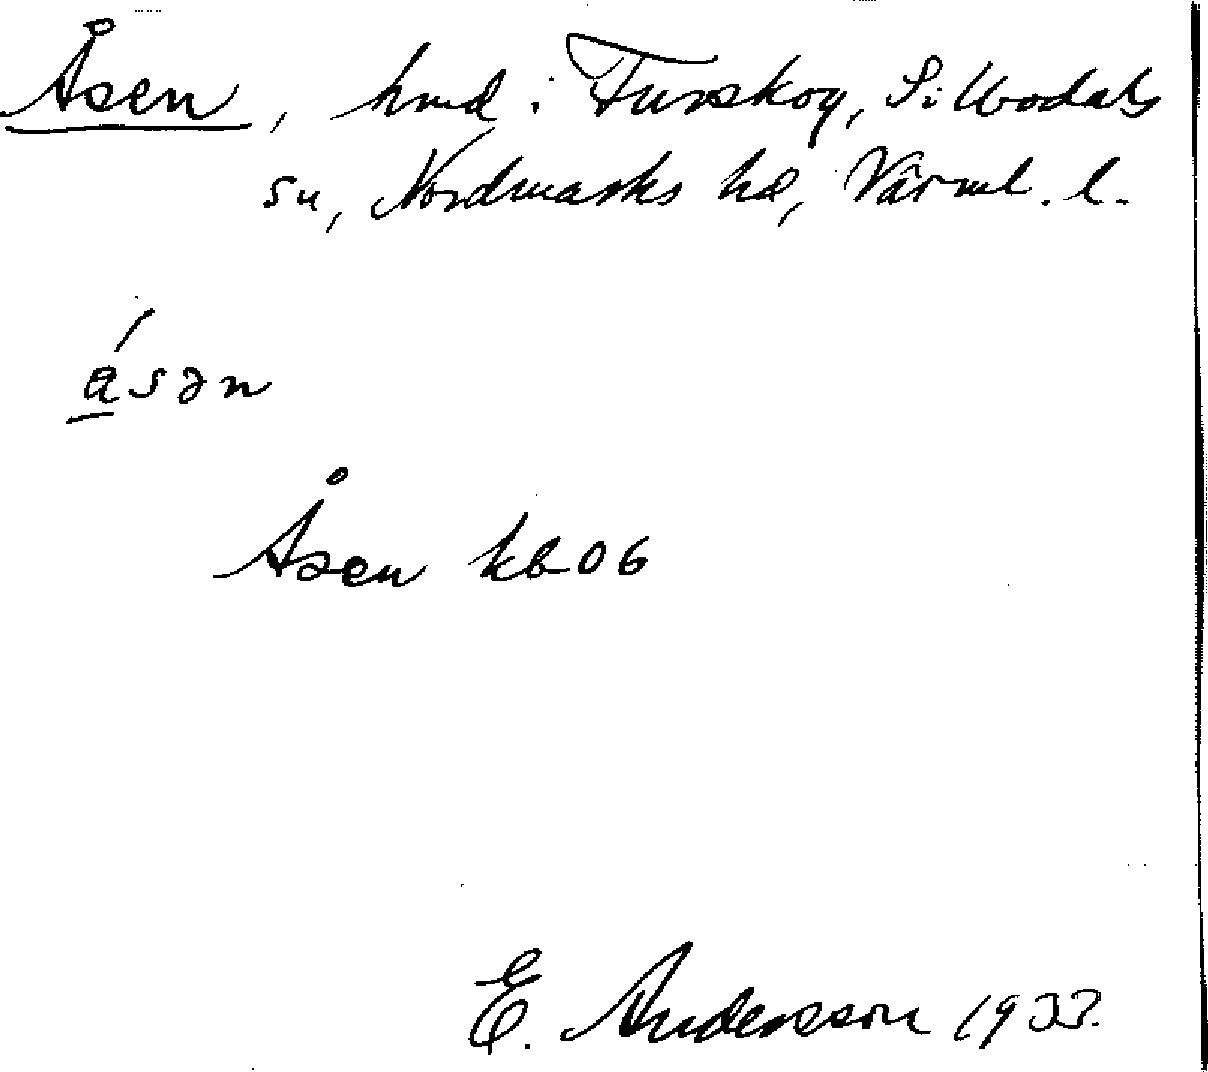 Åsen, hmd i Furskog, Sillbodals
sn, Nordmarks hd, Värml. l.
á̱sən
Åsen kb 06
E. Andersson 1933.